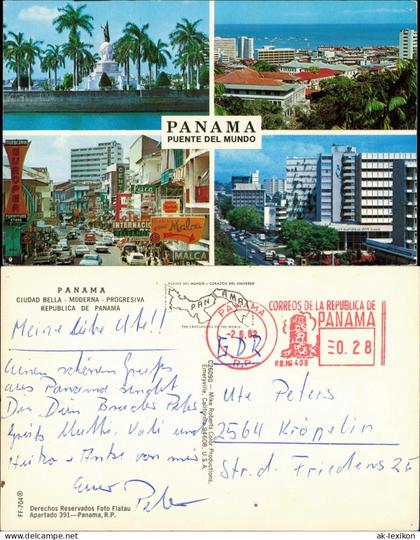 PANAMA
PUENTE DEL MUNDO
INTERNACIONAL
MALCA
PANAMA
CIUDAD BELLA - MODERNA - PROGRESIVA
REPUBLICA DE PANAMA
PUENTE DEL MUNDO - CORAZON DEL UNIVERSO
PANAMA
THE CROSSROADS OF THE WORLD
PANAMA
-2.6.82
R.P.
CORREOS DE LA REPUBLICA DE
PANAMA
0.28
P.B. Nº 408
GDR
Meine liebe Ute!!
Einen schönen Gruß
aus Panama sendet
Dir Dein Bruder Peter
Grüß Mutti, Vati und
Heiko + Anke von mir
Euer Peter
C26090 - Mike Roberts Color Productions
Emeryville, California 94608, U.S.A.
Ute Peters
2564 Kröpelin
Str. d. Friedens 25
FF-704®
Derechos Reservados Foto Flatau
Apartado 391—Panama, R.P.
www.ak-lexikon.de
ak-lexikon